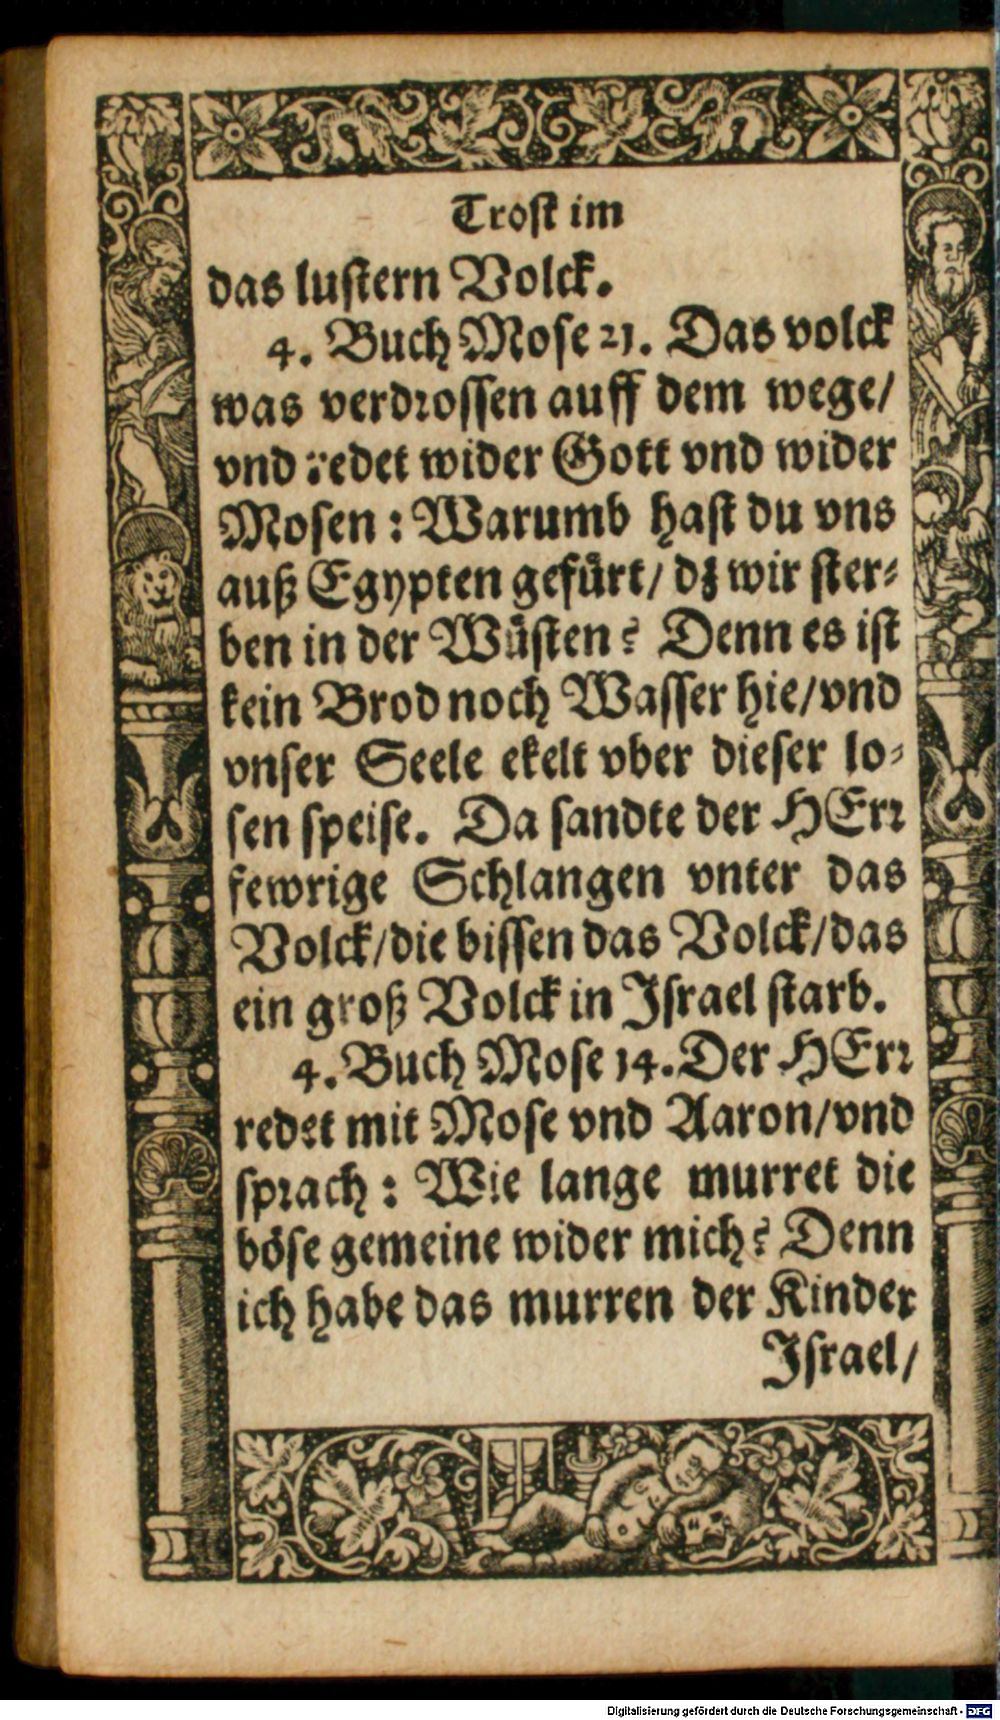 Trost im
das lustern Volck.
4. Buch Mose 21. Das volck
was verdrossen auff dem wege/
vnd redet wider Gott vnd wider
Mosen: Warumb hast du vns
auß Egypten gefürt/ dz wir ster-
ben in der Wüsten? Denn es ist
kein Brod noch Wasser hie/ vnd
vnser Seele ekelt vber dieser lo-
sen speise. Da sandte der HErr
fewrige Schlangen vnter das
Volck/ die bissen das Volck/ das
ein groß Volck in Israel starb.
4. Buch Mose 14. Der HErr
redet mit Mose vnd Aaron/ vnd
sprach: Wie lange murret die
böse gemeine wider mich? Denn
ich habe das murren der Kinder
Israel/
Digitalisierung gefördert durch die Deutsche Forschungsgemeinschaft - DFG